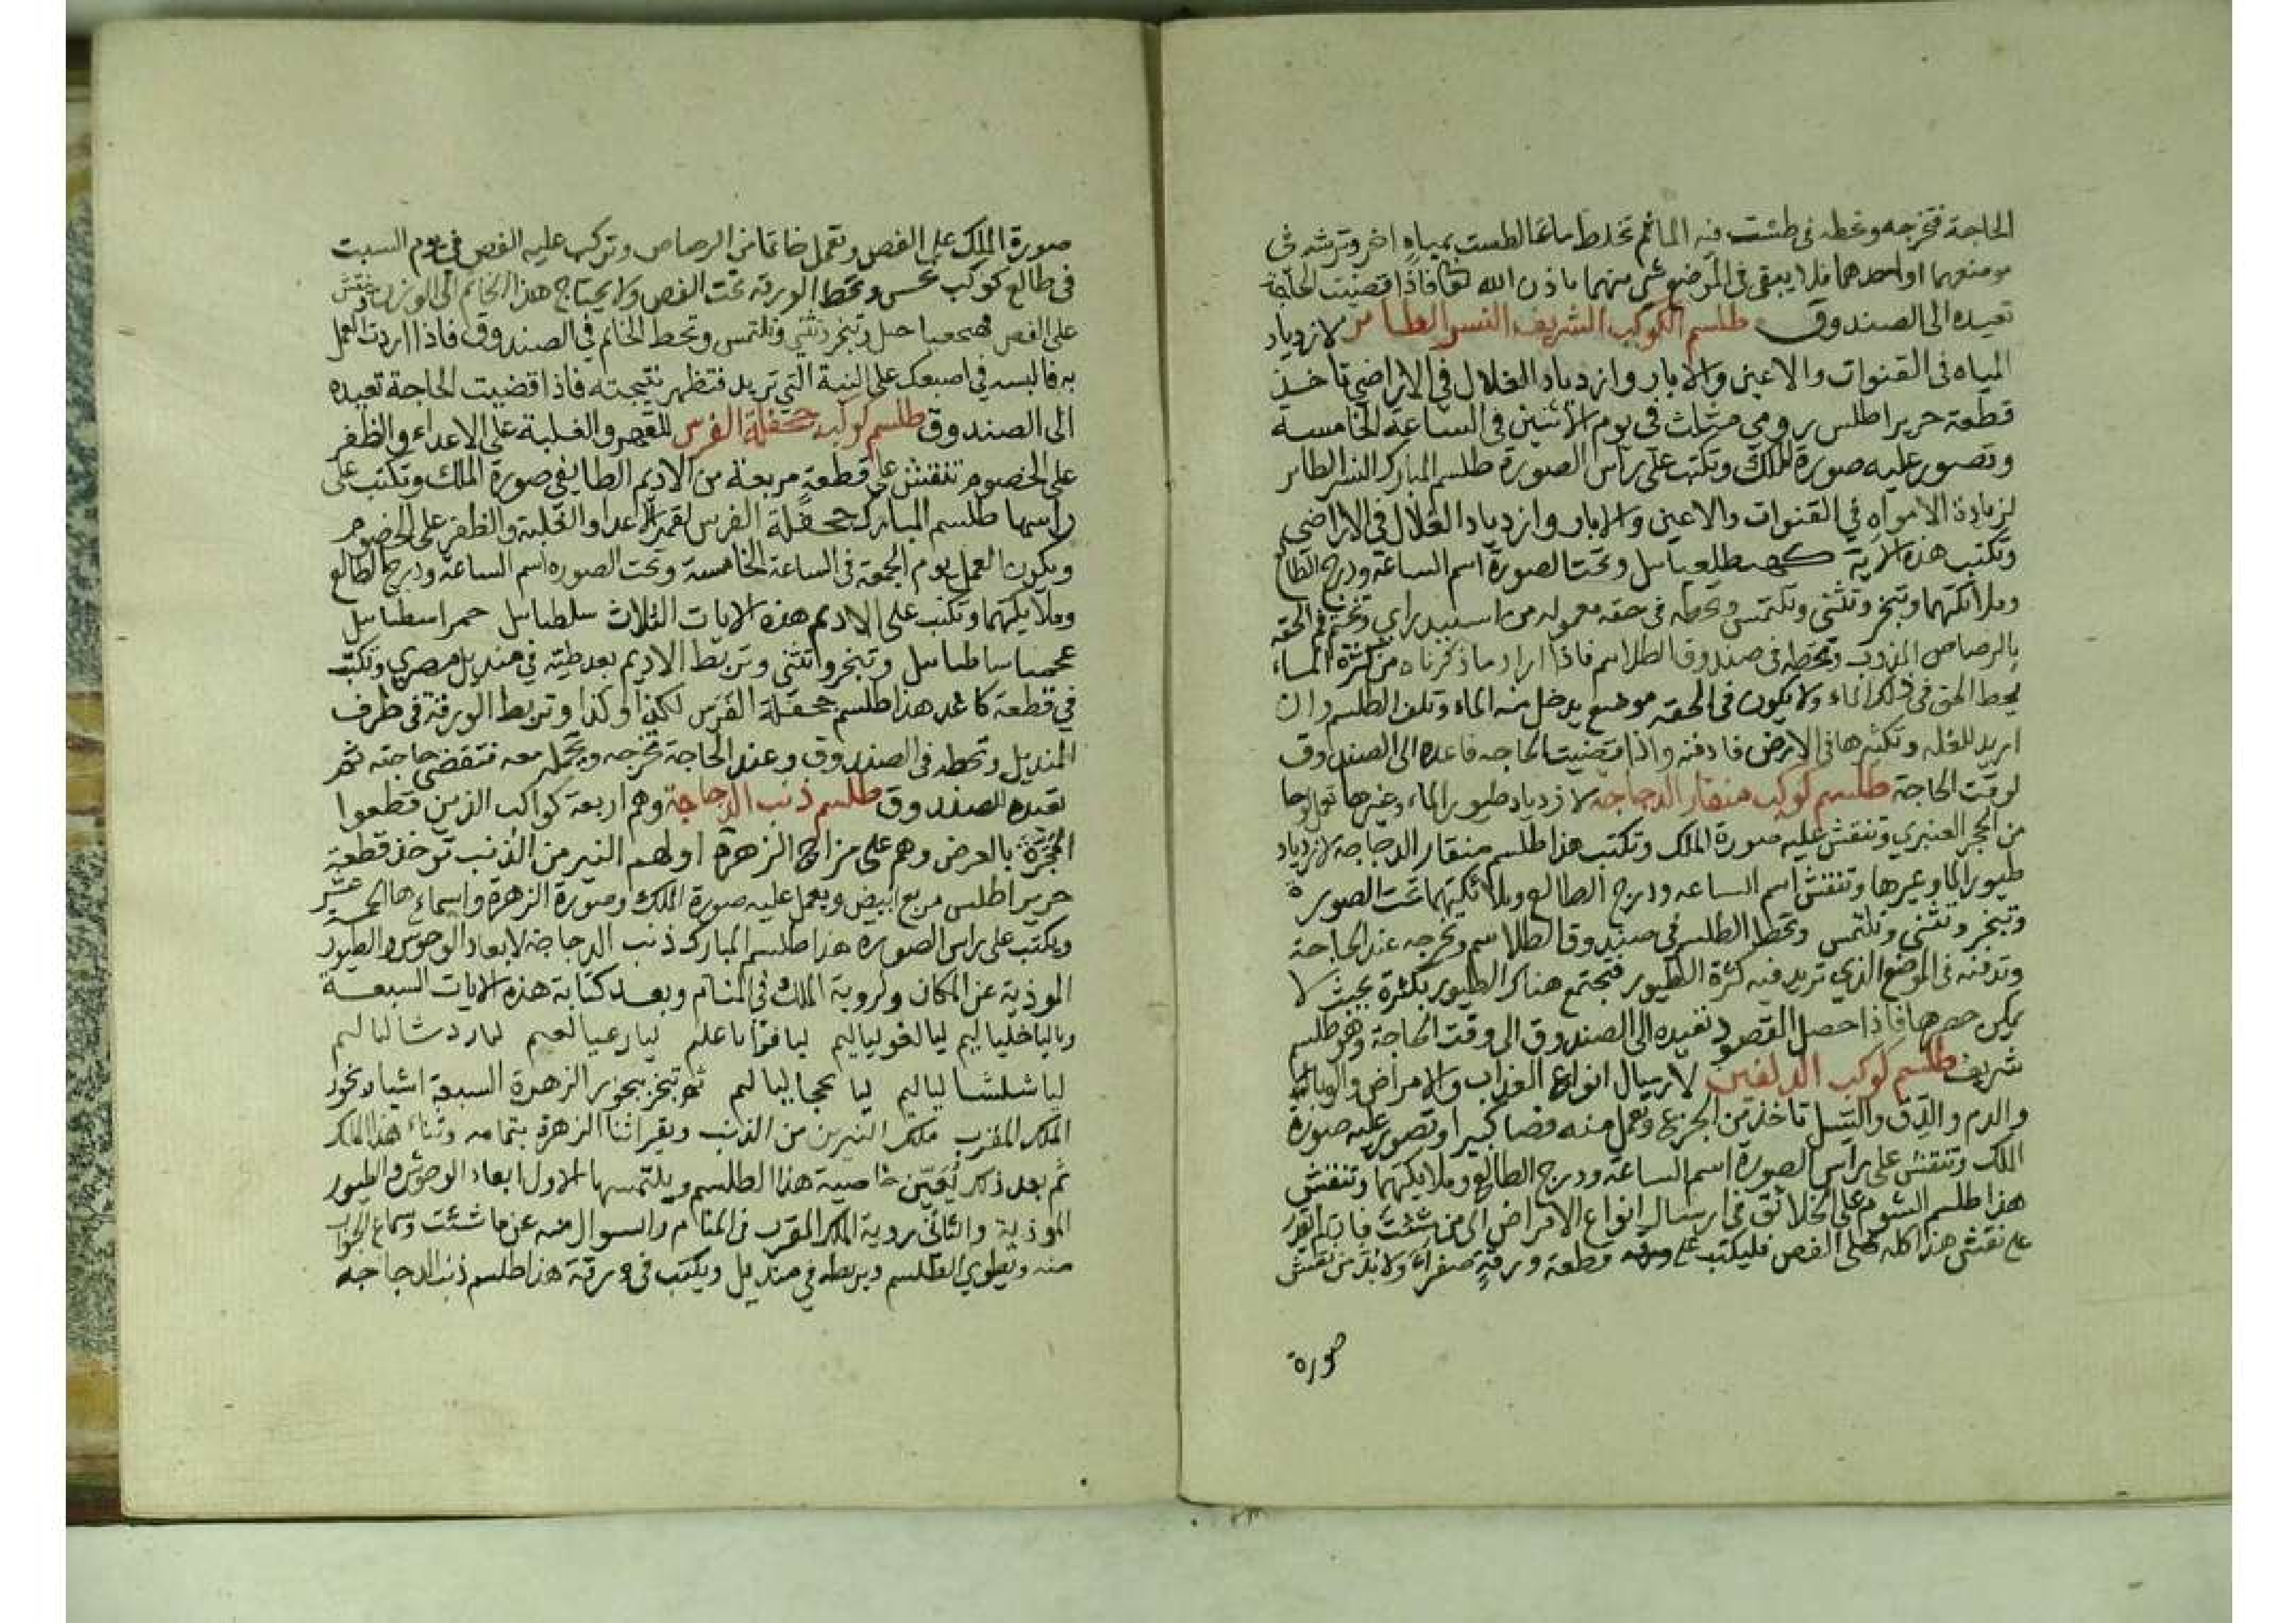 الحاجة فتخرجه وتحطه في طشت فيه الماء ثم تخلط ماء الطست بمياه اخر وترشه في
موضعهما او احدهما فلا يبقى في الموضع شي منهما باذن الله تعا فاذا قضيت الحاجة
تعيده الى الصندوق طلسم الكوكب الشريف النسر الطاير لازدياد
المياه في القنوات والاعين والابار وازدياد الغلال في الاراضي تاخذ
قطعة حرير اطلس رومي مثلث في يوم الاثنين في الساعة الخامسة
وتصور عليه صورة الملك وتكتب على راس الصورة طلسم المبارك النسر الطاير
لزيادة الامواه في القنوات والاعين والابار وازدياد الغلال في الاراضي
وتكتب هذه الاية وتحت الصورة اسم الساعة ودرج الطالع
وملائكتهما وتبخر وتثني وتلتمس وتحطه في حقه معموله من اسبيدراي وتختم فم الحقه
بالرصاص المذوب وتحطه في صندوق الطلاسم فاذا اراد ما ذكرناه من كثرة الماء
يحط الحق في ذلك الماء ولا يكون في الحقه موضع يدخل منه الماء وتلف الطلسم وان
اريد للغله وتكثيرها في الارض فادفنه واذا قضيت الحاجه فاعده الى الصندوق
لوقت الحاجة طلسم كوكب منقار الدجاجة لازدياد طيور الماء وغيرها تعمل لوحا
من الحجر العنبري وتنقش عليه صورة الملك وتكتب هذا طلسم منقار الدجاجة لازدياد
طيور الما وغيرها وتنقش اسم الساعه ودرج الطالع وملائكتهما تحت الصورة
وتبخر وتثني وتلتمس وتحط الطلسم في صندوق الطلاسم وتخرجه عند الحاجة
وتدفنه في الموضع الذي تريد فيه كثرة الطيور فتجتمع هناك الطيور بكثرة بحيث لا
يمكن حصرها فاذا حصل المقصود تعيده الى الصندوق الى وقت الحاجة وهو طلسم
شريف طلسم كوكب الدلفين لارسال انواع العذاب والامراض والوباء
والدم والدق والسل تاخذ من الجزع وتعمل منه فصا كبيرا وتصور عليه صورة
الملك وتنقش على راس الصورة اسم الساعة ودرج الطالع وملايكتهما وتنقش
هذا طلسم الشوم على الخلائق في ارسال انواع الامراض الى من شئت فان لم تقدر
على نقش هذا كله على الفص فليكتب على قطعة ورقة صفراء ولا بد من نقش
صورة
صورة الملك على الفص وتعمل خاتما من الرصاص وتركب عليه الفص في يوم السبت
في طالع كوكب نحس وتحط الورقة تحت الفص ولا يحتاج هذا الخاتم الى الوزن وتنقش
على الفص وتبخر وتثني وتلتمس وتحط الخاتم في الصندوق فاذا اردت العمل
به فالبسه في اصبعك على النية التي تريد فتظهر نتيجته فاذا قضيت الحاجة تعيده
الى الصندوق طلسم كوكب جحفلة الفرس للقهر والغلبة على الاعداء والظفر
على الخصوم تنقش على قطعة مربعة من الاديم الطايفي صورة الملك وتكتب على
راسها طلسم المبارك جحفلة الفرس لقهر الاعدا والغلبة والظفر على الخصوم
ويكون العمل يوم الجمعة في الساعة الخامسة وتحت الصوره اسم الساعة ودرج الطالع
وملايكتهما وتكتب على الاديم هذه الايات الثلاث
وتبخر واتثني وتربط الاديم بعد طيته في منديل مصري وتكتب
في قطعة كاغد هذا طلسم جحفلة الفرس لكذا وكذا وتربط الورقة في طرف
المنديل وتحطه في الصندوق وعند الحاجة تخرجه وتحمله معه فتقضى حاجته ثم
تعيده للصندوق طلسم ذنب الدجاجة وهم اربعة كواكب الذين قطعوا
المجرة بالعرض وهم على مزاج الزهرة اولهم النير من الذنب توخذ قطعة
حرير اطلس مربع ابيض ويعمل عليه صورة الملك وصورة الزهرة واسماءها الخمسة عشر
ويكتب على راس الصورة هذا طلسم المبارك ذنب الدجاجة لابعاد الوحوش والطيور
الموذية عن المكان ولروية الملك في المنام وبعد كتابة هذه الايات السبعة
ثم تبخر ببخور الزهرة السبعة اشياء بخور
الملك المقرب ملك النيرين من الذنب ويقرا ثنا الزهرة بتمامه وثناء هذا الملك
ثم بعد ذلك يعين خاصية هذا الطلسم ويلتمسها الاول ابعاد الوحوش والطيور
الموذية والثاني روية الملك المقرب في المنام والسوال منه عن ما شئت وسماع الجواب
منه ويطوي الطلسم ويربطه في منديل ويكتب في ورقة هذا طلسم ذنب الدجاجه